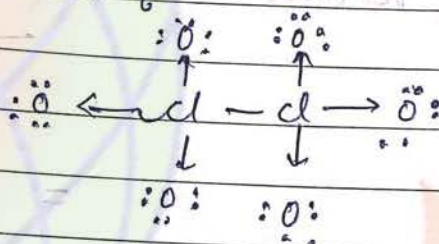 :Ö: :Ö:
↑ ↑
:Ö ← Cl — Cl → Ö:
↓ ↓
:O: :O: